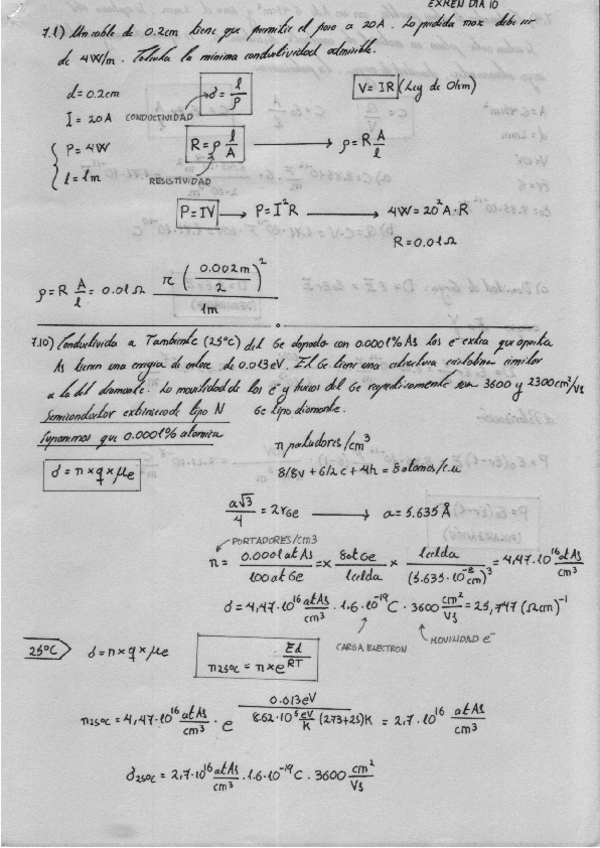 EXAMEN DIA 10
7.1) Un cable de 0.2cm tiene que permitir el paso a 20A. La perdida max debe ser
de 4W/m. Calcula la minima conductividad admisible.
d=0.2cm
I = 20A
P=4W
l=1m
CONDUCTIVIDAD
σ = l/ρ
V = IR (Ley de Ohm)
R = ρ l/A → ρ = R A/l
RESISTIVIDAD
P=IV → P=I²R → 4W=20²A·R
R=0.01Ω
ρ = R A/l = 0.01Ω π (0.002m/2)² / 1m
7.10) Conductivida a Tambiente (25°C) del Ge dopado con 0.0001% As los e⁻ extra que aporta
As tienen una energia de enlace de 0.013eV. El Ge tiene una estructura cristalina similar
a la del diamante. La movilidad de los e⁻ y huecos del Ge respectivamente son 3600 y 2300cm²/Vs
Semiconductor extrinseco de tipo N Ge tipo diamante.
Suponemos que 0.0001% atomica
n portadores/cm³
σ = n×q×μe
8/8v + 6/2c + 4h = 8 atomos/c.u
a√3/4 = 2rGe → a=5.635 Å
PORTADORES/cm3
n = 0.0001 at As/100 at Ge = × 8 at Ge/1 celda × 1 celda/(5.635·10⁻⁸ cm)³ = 4,47·10¹⁶ at As/cm³
σ = 4,47·10¹⁶ at As/cm³ · 1.6·10⁻¹⁹ C · 3600 cm²/Vs = 25,747 (Ωcm)⁻¹
CARGA ELECTRON
MOVILIDAD e⁻
25°C σ = n×q×μe
n25°C = n×e^(Ed/RT)
n25°C = 4,47·10¹⁶ at As/cm³ · e^(0.013eV / 8.62·10⁵ eV/K (273+25)K) = 2,7·10¹⁶ at As/cm³
σ25°C = 2,7·10¹⁶ at As/cm³ · 1.6·10⁻¹⁹ C · 3600 cm²/Vs